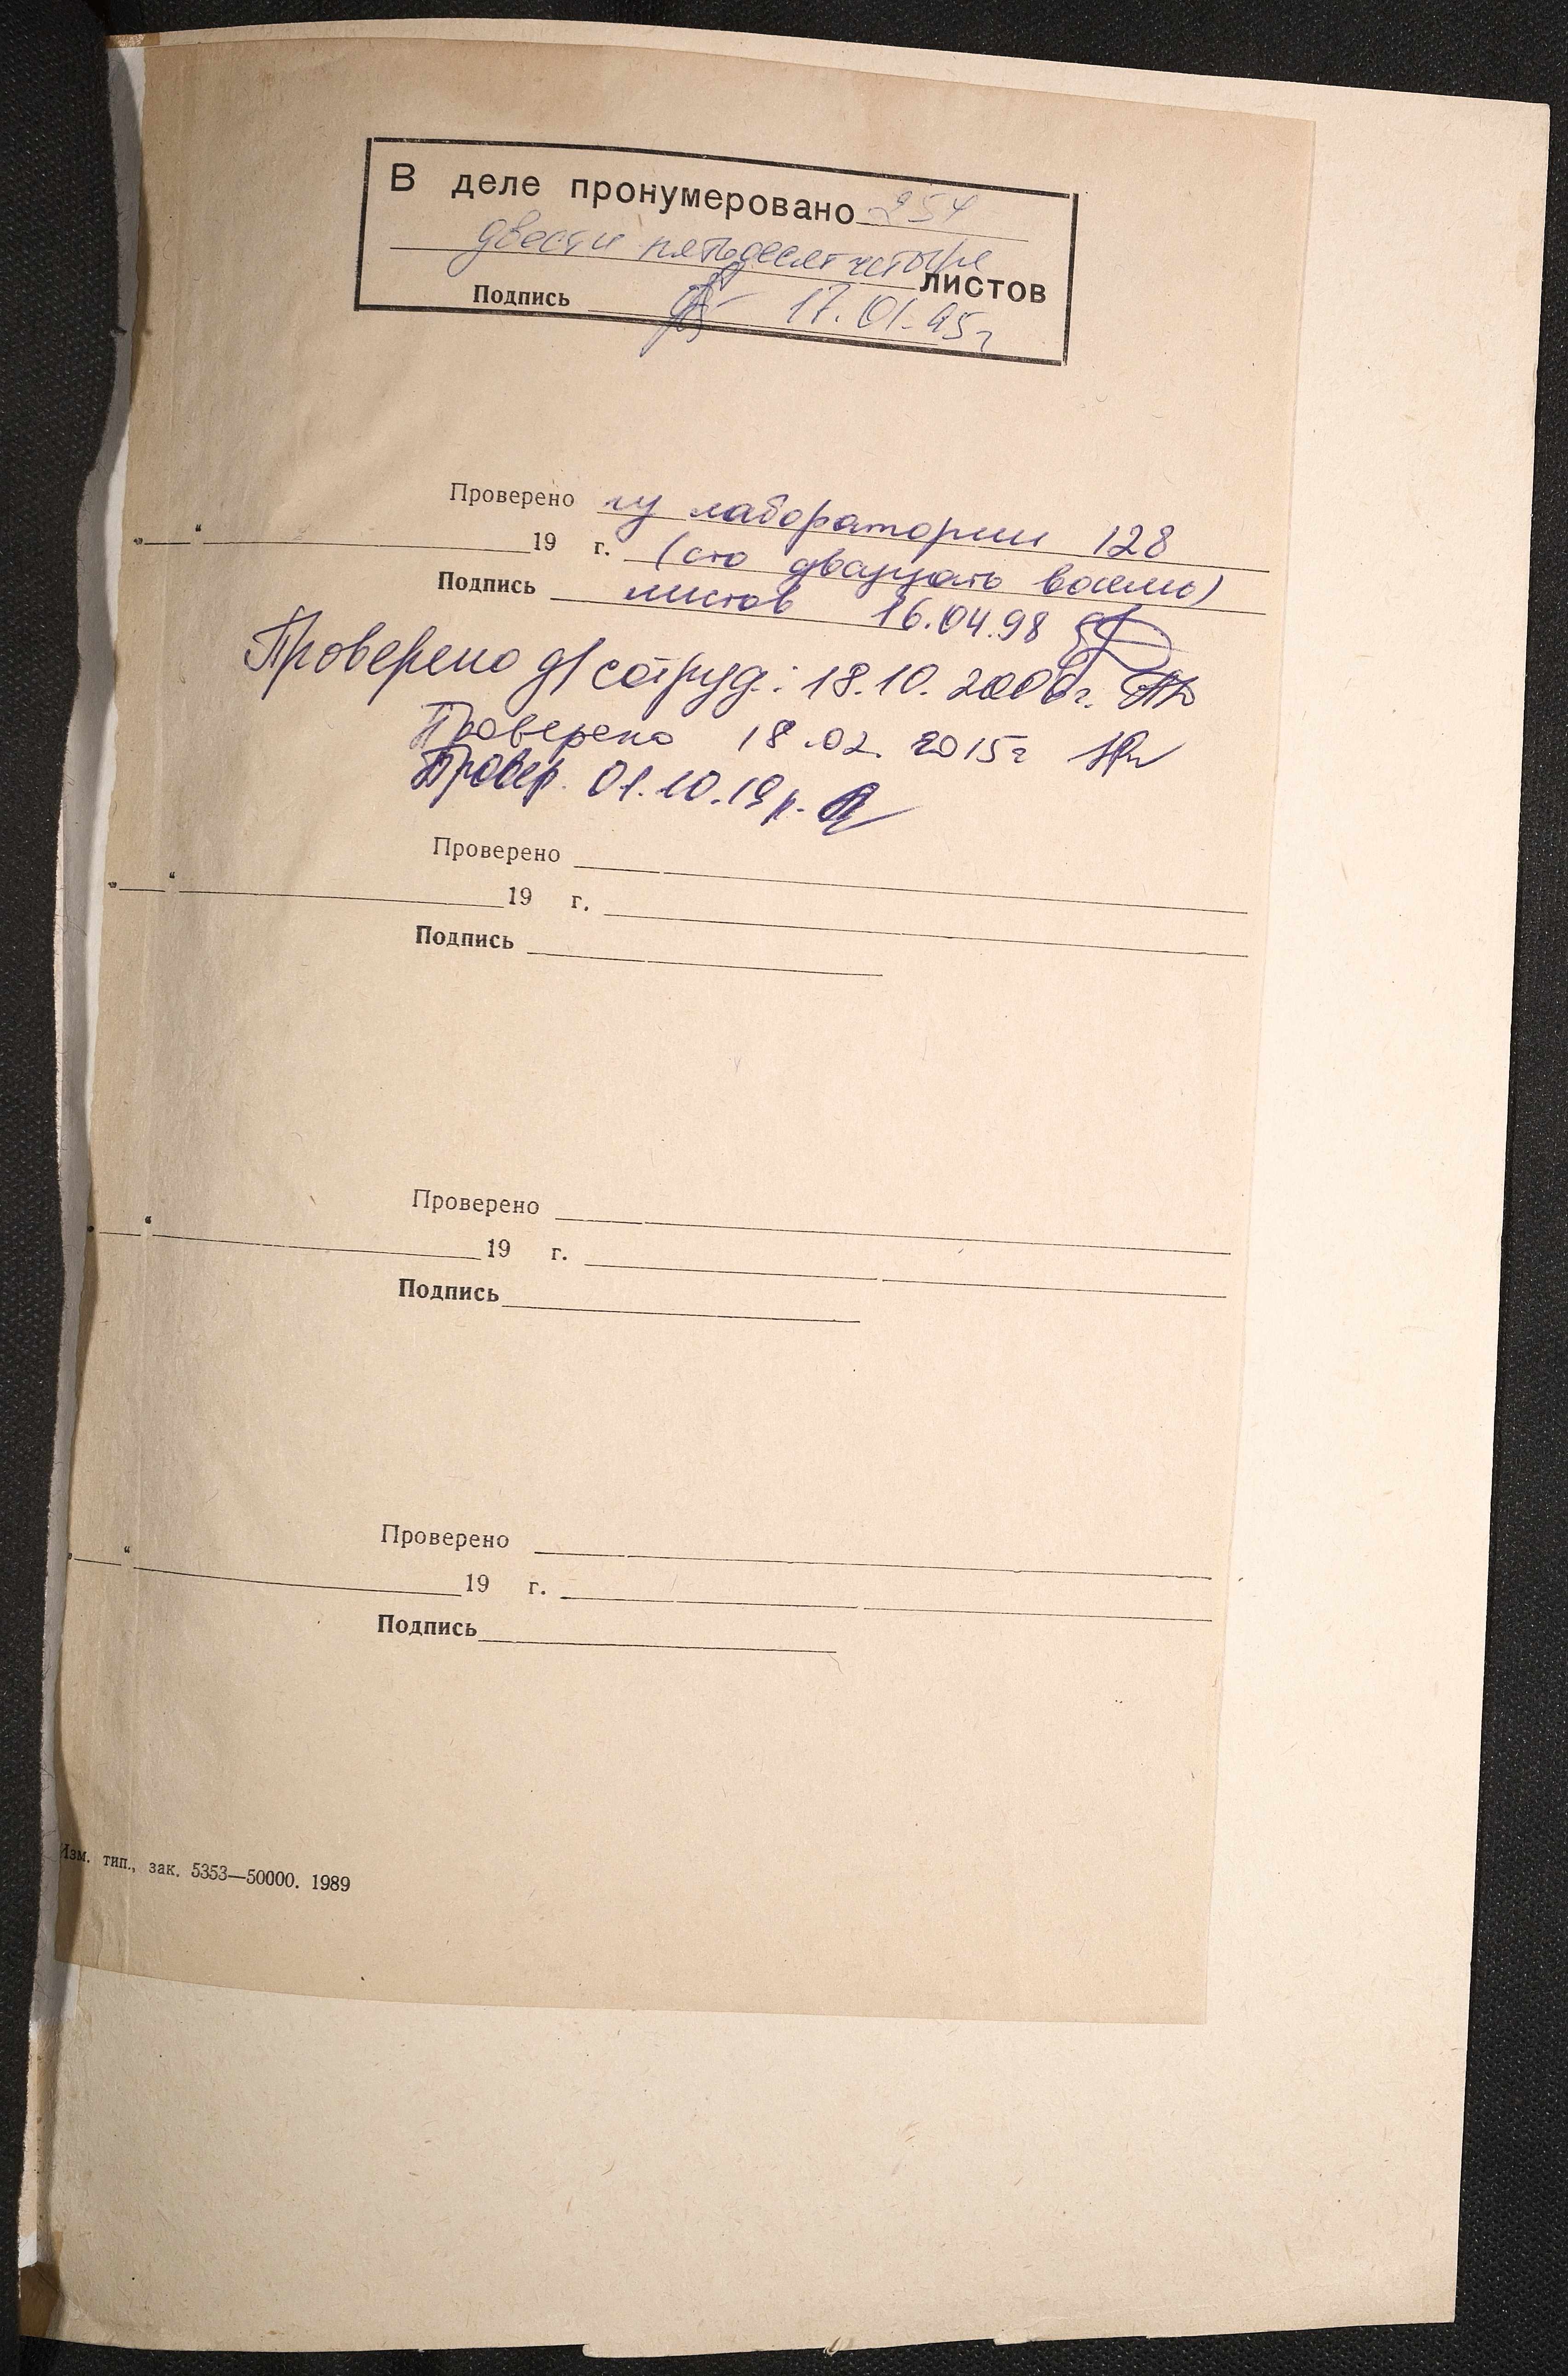 В деле пронумеровано 254
двести пятьдесят четыре
листов
Подпись 17.01.95г
Проверено лаборатории 128
„ “ 19 г. (сто двадцать восемь)
Подпись листов 16.04.98
Проверено д/ сотруд.: 18.10. 2000г.
Проверено 18.02. 2015г
Провер. 01.10.19р.
Проверено
„ “ 19 г.
Подпись
Проверено
„ “ 19 г.
Подпись
Проверено
„ “ 19 г.
Подпись
Изм. тип., зак. 5353—50000. 1989